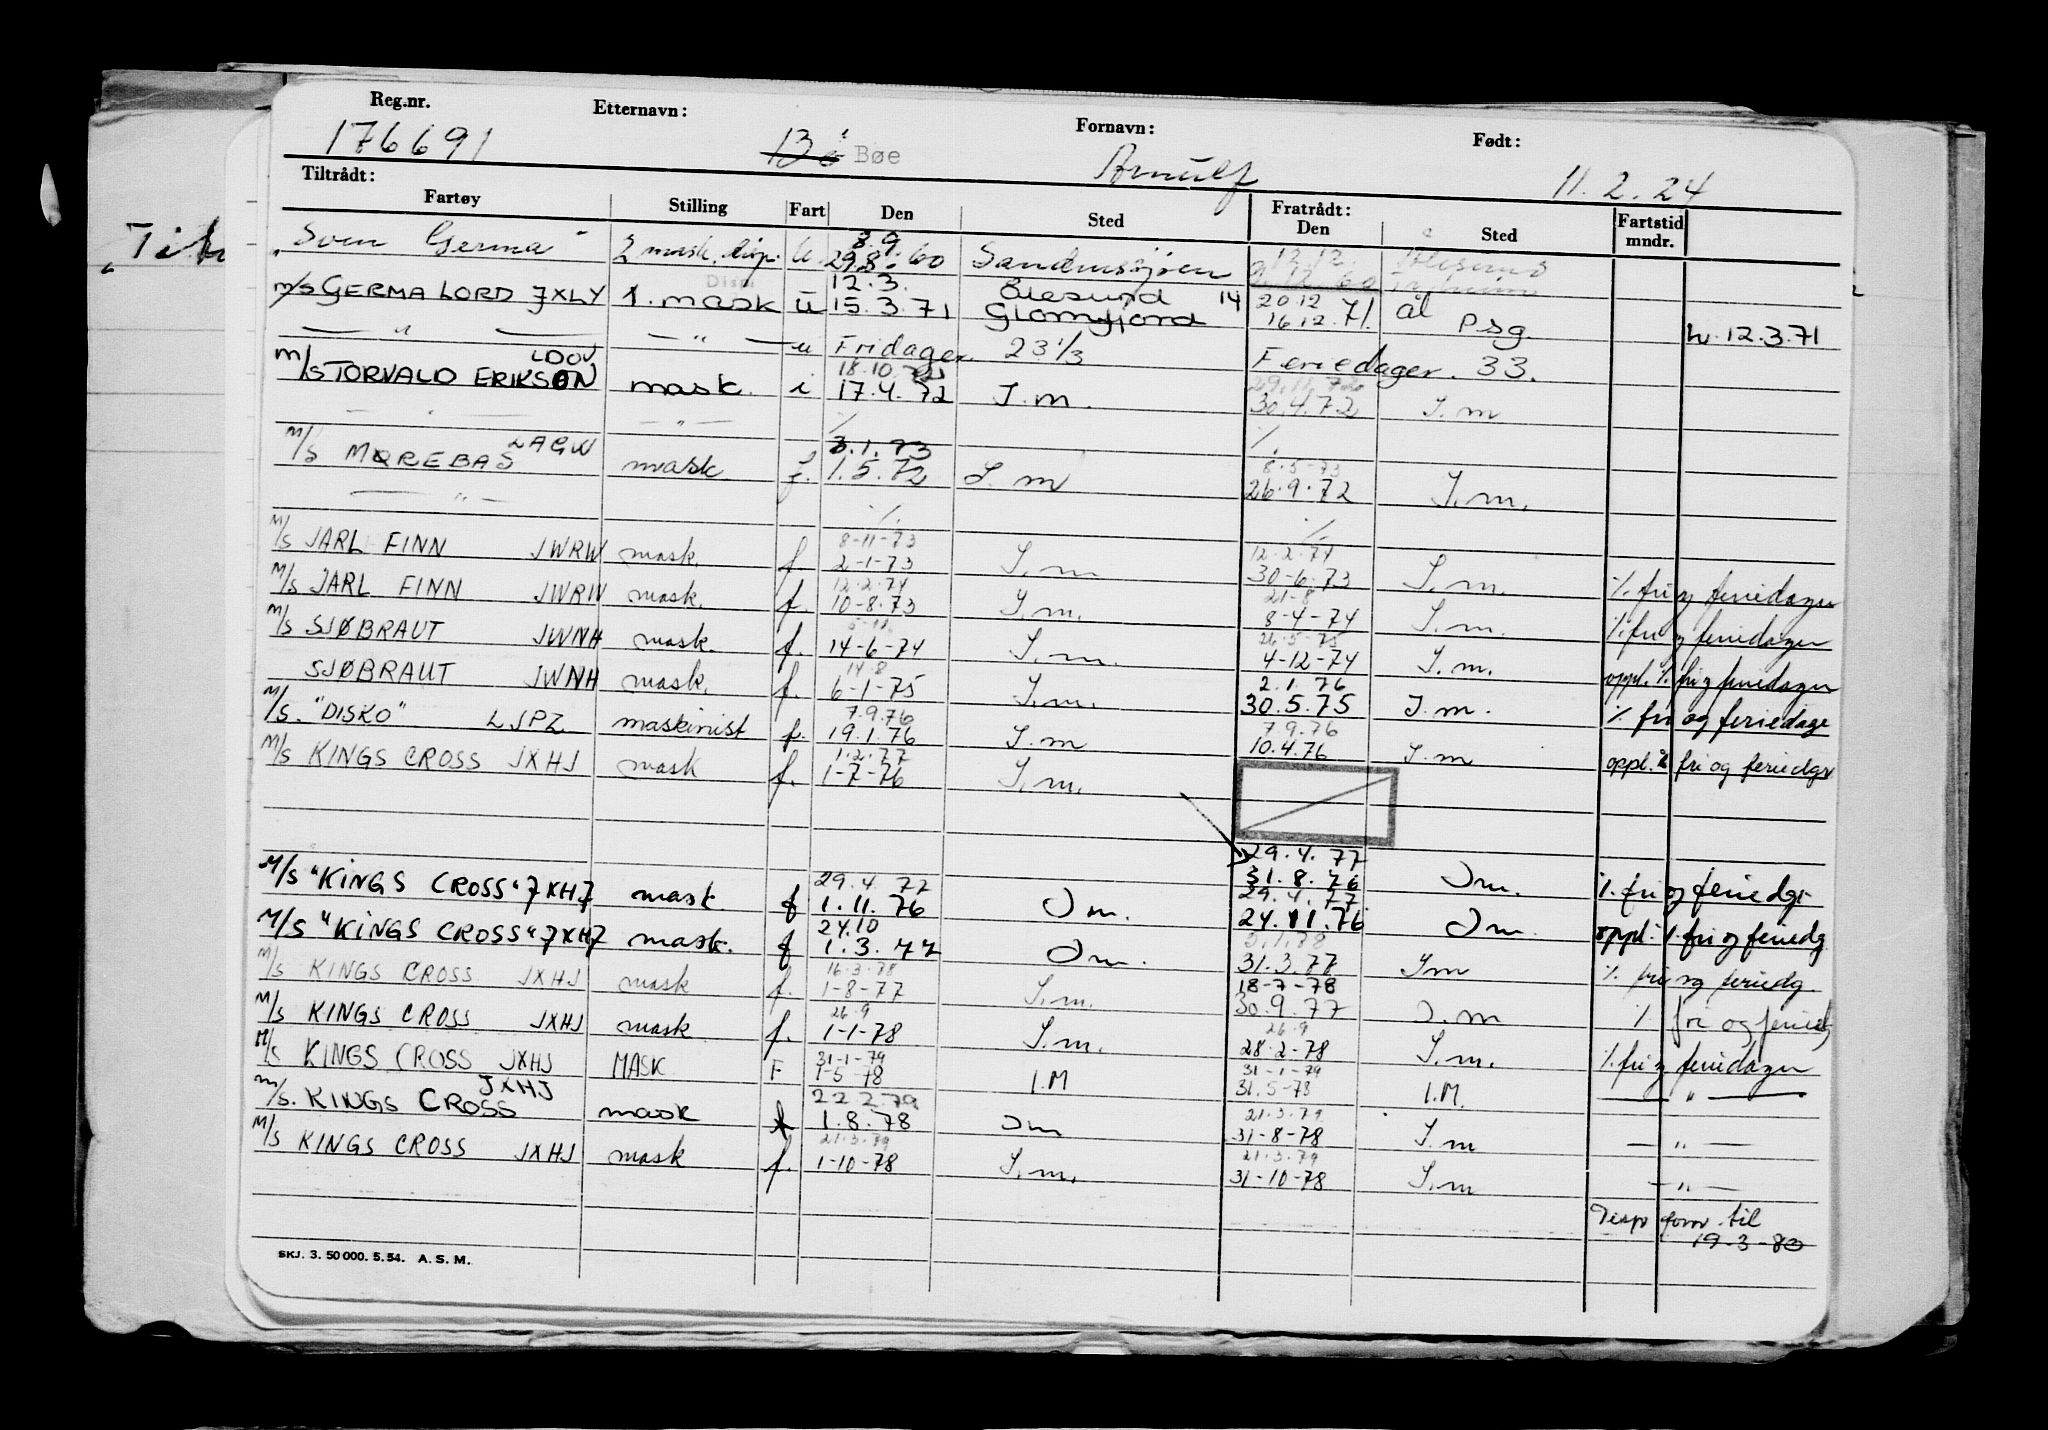 Reg.nr. Etternavn: Fornavn: Født:
176691 Bö Bøe Arnulf 11.2.24
Tiltrådt: Fratrådt:
Fartøy Stilling Fart Den Sted Den Sted Fartstid mndr.
3.9 12.12.
"Sven Germa" 2 mask. disp. u 29.8.60 Sandnessjøen 12.60
12.3. Ålesund 14 20.12
M/S GERMA LORD JXLY 1. mask u 15.3.71 Glomfjord 16.12.71. ål psg.
— " — — " — u Fridager 23 1/3 Feriedager. 33. 12.3.71
LDOV 18.10.
M/S TORVALD ERIKSON mask. i 17.4.72 I.m. 30.4.72 I.m
— " — — " — % %
LAGW 3.1.73 8.5-73
M/S MOREBAS mask f. 1.5.72 I.m 26.9.72 I.m.
— " — % %
8-11-73 12.2.74
M/S JARL FINN JWRW mask. f. 2-1-73 I.m 30-6.73 I.m. % fri og feriedager
12.2.74 21-8
M/S JARL FINN JWRW mask. f. 10-8.73 I.m. 8-4-74 I.m. % fri og feriedager
26.5-75
M/S SJØBRAUT JWNH mask. f. 14-6-74 I.m. 4-12-74 I.m. oppl. % fri og feriedager
14.8 2.1.76
SJØBRAUT JWNH mask. f. 6-1-75 I.m. 30.5.75 I.m. % fri og feriedage
7.9.76 7.9.76
M/S. "DISKO" LJPZ maskinist f. 19.1.76 I.m 10.4.76 I.m oppl. % fri og feriedgr
1.2.77
M/S KINGS CROSS JXHJ mask f. 1-7-76 I.m.
29.4.77
29.4.77 31.8.76
M/S "KINGS CROSS" JXHJ mask f 1.11.76 Im. 29.4.77. Im. % fri og feriedgr
24.10 24.11.76
M/S "KINGS CROSS" JXHJ mask. f 1.3.77 Im. 31.3.77 Im. oppl. % fri og feriedg
16.3.78 18-7-78
M/S KINGS CROSS JXHJ mask f. 1-8-77 I.m. 30.9.77 Im % fri og feriedg.
26.9 26.9
M/S KINGS CROSS JXHJ mask f. 1-1-78 I.m. 28.2-78 I.m % fri og feriedg
31-1-79 31-1-79
M/S KINGS CROSS JXHJ MASK F 1-5-78 I.M 31.5-78 I.m. % fri og feriedager
JXHJ 22.2.79 21.3.79
M/S. KINGS CROSS mask f 1.8.78 Im 31-8-78 I.M. — " —
21.3.79 21.3.79
M/S KINGS CROSS JXHJ mask f. 1-10-78 I.m. 31-10-78 I.m — " —
I.m — " —
Disp forn. til
19-3-80
SKJ. 3. 50 000. 5. 54. A. S. M.